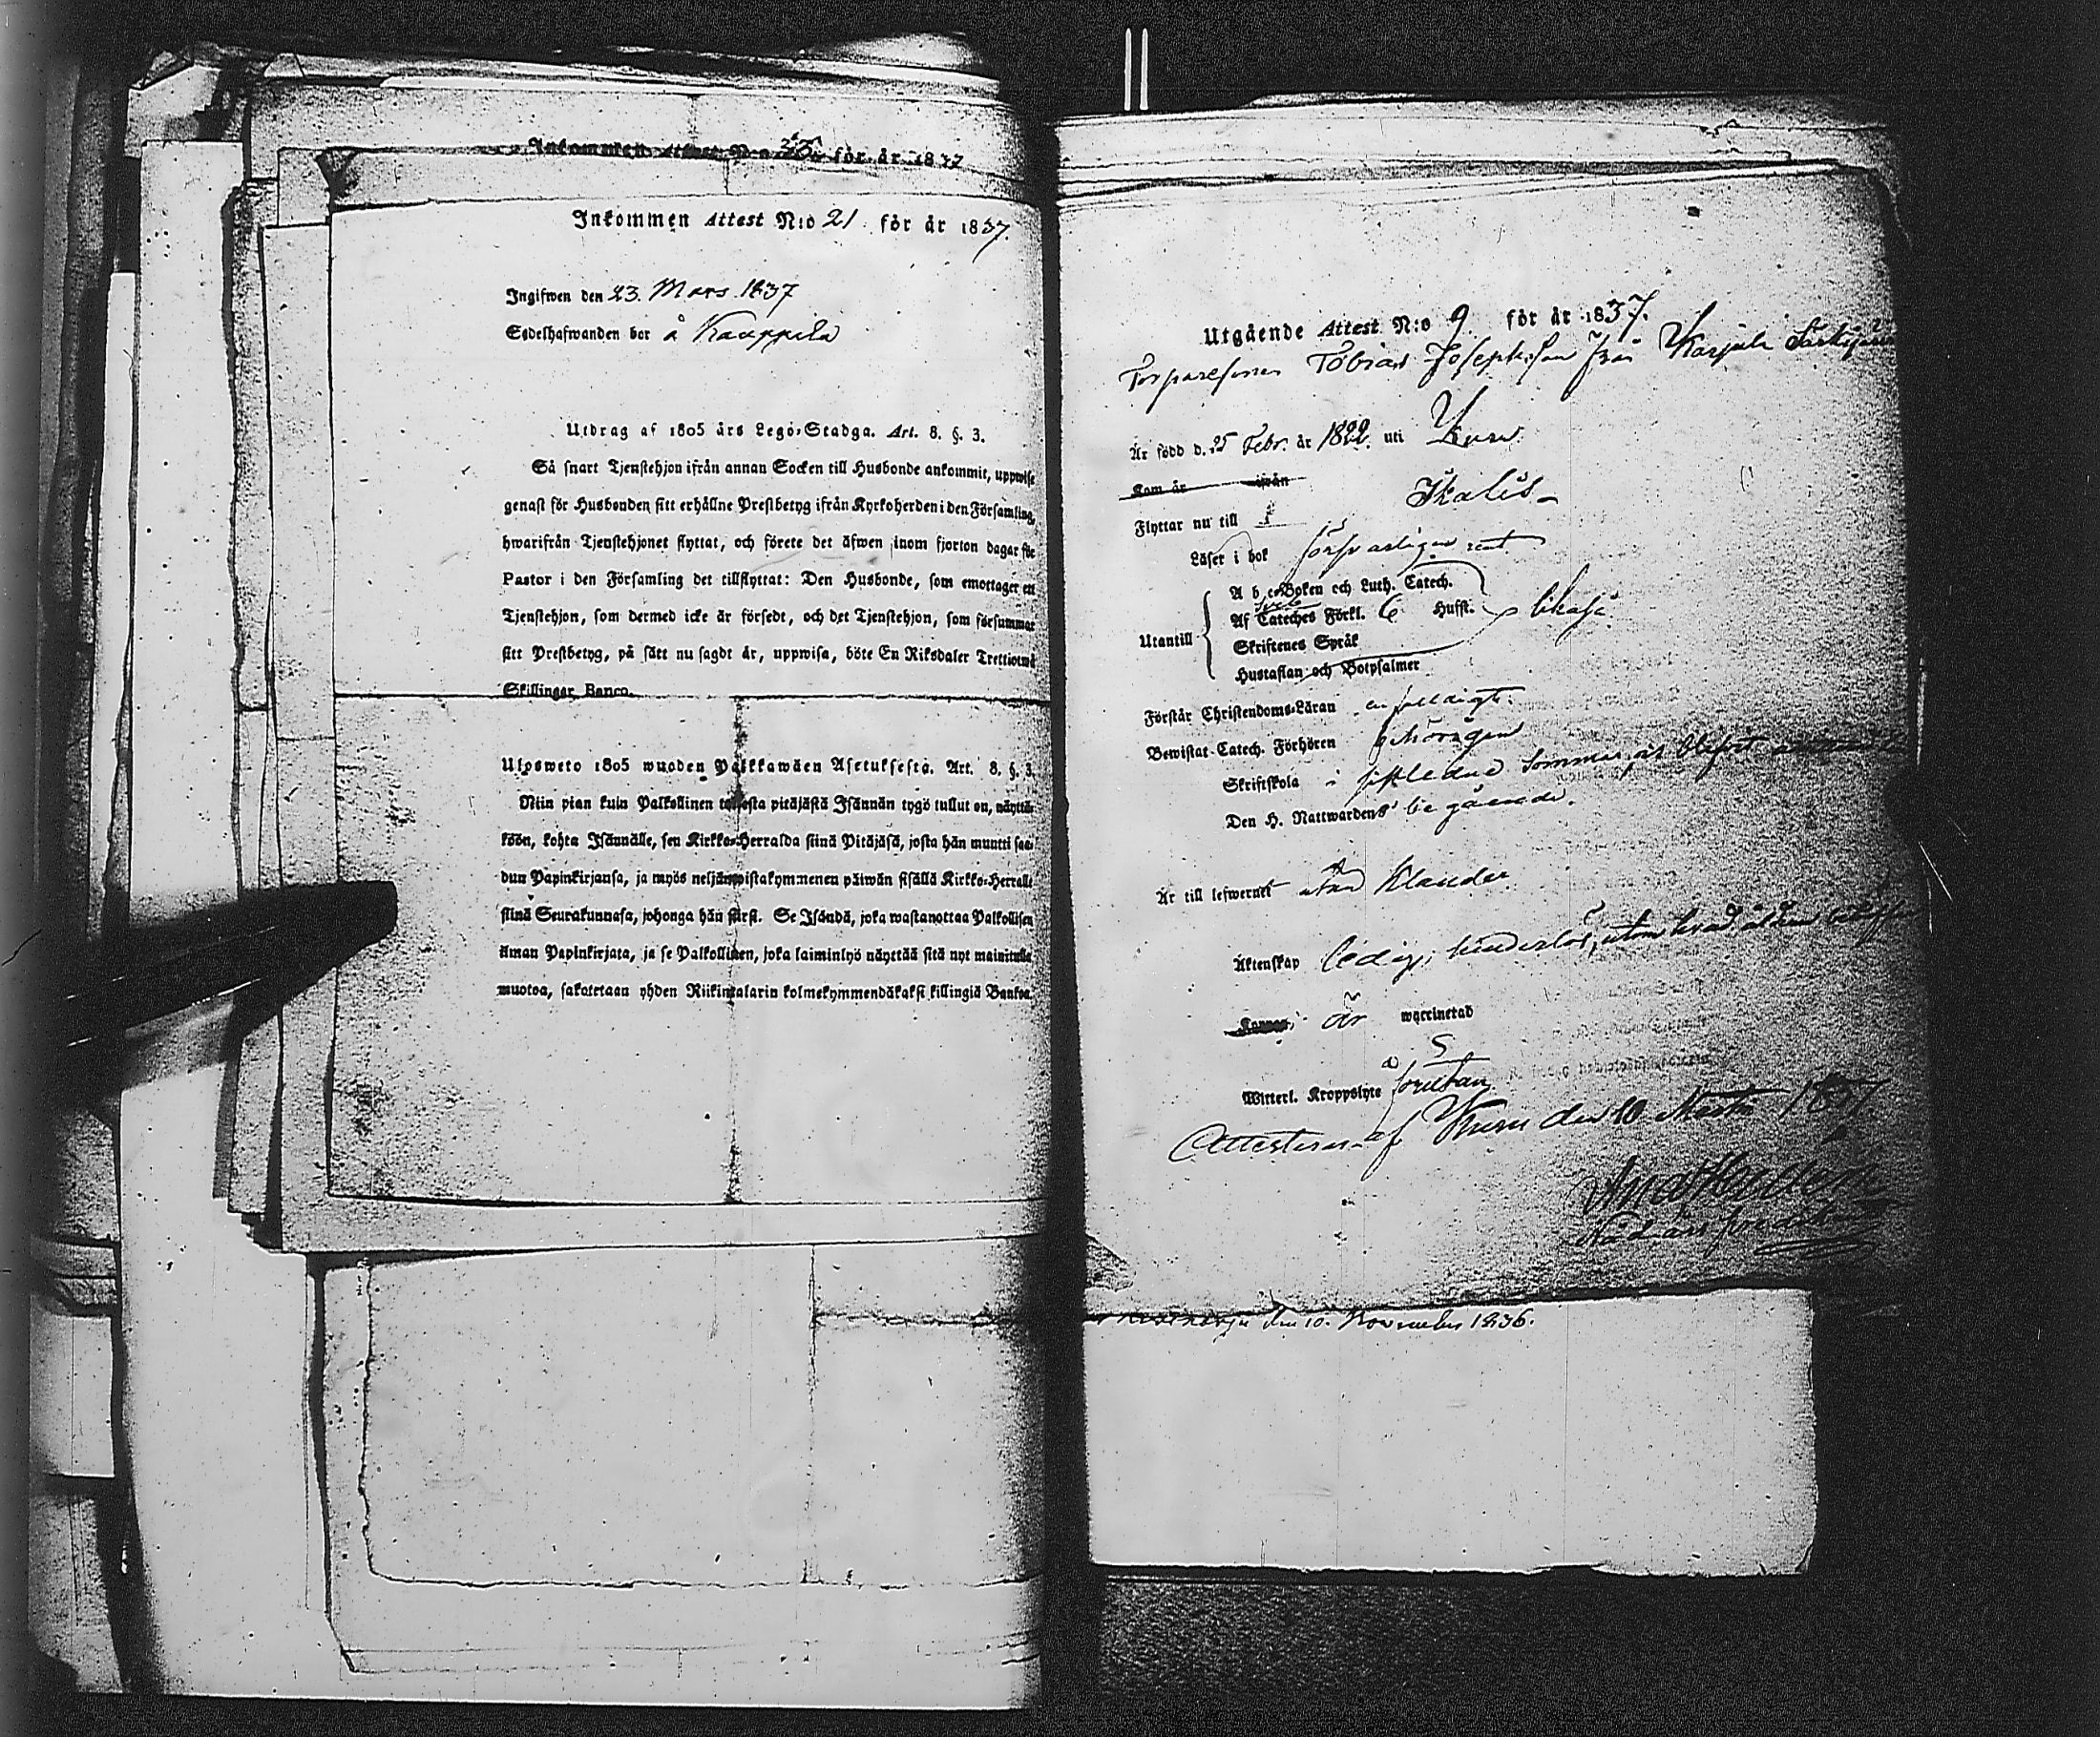 Inkommen Attest N:o för år 1837
Inkommen Attest N:o 21 för år 1837.
Ingifwen den 23. Mars 1837
Sedelhafwanden bor å Kauppila
Utdrag af 1805 års Lego-Stadga. Art. 8. §. 3.
Så snart Tjenstehjon ifrån annan Socken till Husbonde ankommit, uppwise
genast för Husbonden sitt erhållne Prestbetyg ifrån Kyrkoherden i den Församling,
hwarifrån Tjenstehjonet flyttat, och förete det äfwen inom fjorton dagar för
Pastor i den Församling det tillflyttat: Den Husbonde, som emottager ett
Tjenstehjon, som dermed icke är försedt, och det Tjenstehjon, som försummar
sitt Prestbetyg, på sätt nu sagdt är, uppwisa, böte En Riksdaler Trettiotwå
Skillingar Banco.
Ulosweto 1805 wuoden Palkkawäen Asetuksesta. Art. 8. §. 3.
Niin pian kuin Palkollinen toisesta pitäjästä Isännän tygö tullut on, näyttä-
köön, kohta Isännälle, sen Kirkko-Herralda siinä Pitäjäsä, josta hän muutti saa-
dun Papinkirjansa, ja myös neljäntoistakymmenen päiwän sisällä Kirkko-Herralle
siinä Seurakunnasa, johonga hän siirsi. Se Isändä, joka wastanottaa Palkollisen
ilman Papinkirjata, ja se Palkollinen, joka laiminlyö näyttää sitä nyt mainitulla
muotoa, sakotetaan yhden Riikintalarin kolmekymmendäkaksi killingiä Bankoa.
Utgående Attest N:o 9 för år 1837.
Torparesonen Tobias Josephsson från Karjula
Är född d. 25 Febr. år 1822. uti Kuru.
Kom år ifrån
Flyttar nu till Ikalis
Läser i bok försvarligen rent
A b c-Boken och Luth. Catech.
Af Cateches Förkl. 6 Hufst. likaså
Utantill
Skriftenes Språk
Hustaflan och Botpsalmer
Förstår Christendoms-Läran enfaldigt.
Bewistat Catech. Förhören behörigen
Skriftskola i sistledne Sommar,
Den H. Nattwardens begående.
Är till lefwernet utan klander
Äktenskap ledig, hinderlös, utom hvad
Koppor, är waccinerad
Witterl. Kroppslyte förutan
Attesteras af Kuru den 10 Martii 1837
den 10. November 1836.